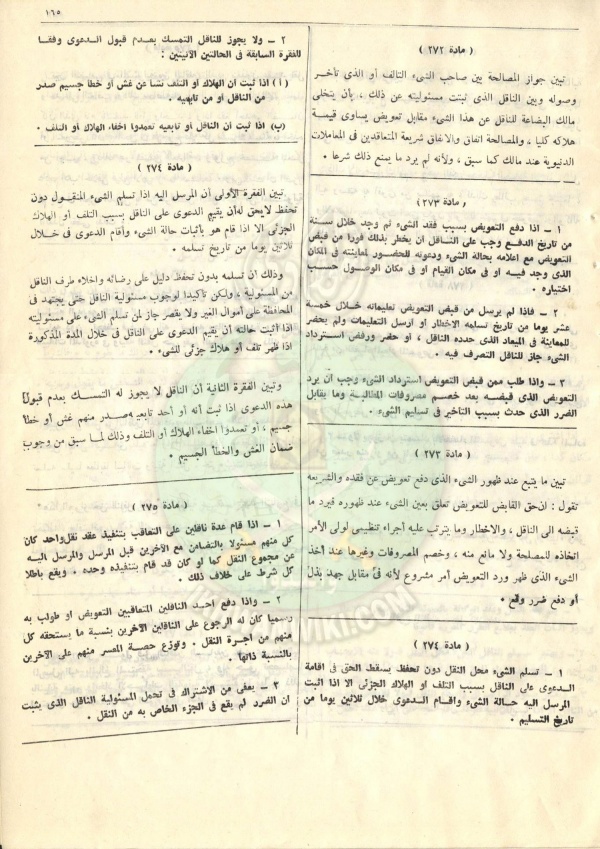 ١٦٥
( مادة ٢٧٢ )
تبين جواز المصالحة بين صاحب الشىء التالف أو الذى تأخر
وصوله وبين الناقل الذى ثبتت مسئوليته عن ذلك ، بأن يتخلى
مالك البضاعة للناقل عن هذا الشىء مقابل تعويض يساوى قيمة
هلاكه كليا ، والمصالحة اتفاق والاتفاق شريعة المتعاقدين فى المعاملات
الدنيوية عند مالك كما سبق ، ولأنه لم يرد ما يمنع ذلك شرعا .
( مادة ٢٧٣ )
١ – اذا دفع التعويض بسبب فقد الشىء ثم وجد خلال سنة
من تاريخ الدفع وجب على الناقل ان يخطر بذلك فورا من قبض
التعويض مع اعلامه بحالة الشىء ودعوته للحضور لمعاينته فى المكان
الذى وجد فيه او فى مكان القيام او فى مكان الوصول حسب
اختياره .
٢ – فاذا لم يرسل من قبض التعويض تعليماته خلال خمسة
عشر يوما من تاريخ تسلمه الاخطار او ارسل التعليمات ولم يحضر
للمعاينة فى الميعاد الذى حدده الناقل ، أو حضر ورفض استرداد
الشىء جاز للناقل التصرف فيه .
٣ – واذا طلب ممن قبض التعويض استرداد الشىء وجب أن يرد
التعويض الذى قبضه بعد خصم مصروفات المطالبة وما يقابل
الضرر الذى حدث بسبب التأخير فى تسليم الشىء .
( مادة ٢٧٣ )
تبين ما يتبع عند ظهور الشىء الذى دفع تعويض عن فقده والشريعة
تقول : ان حق القابض للتعويض تعلق بعين الشىء عند ظهوره فيرد ما
قبضه الى الناقل ، والاخطار وما يترتب عليه أجراء تنظيمى لولى الأمر
اتخاذه للمصلحة ولا مانع منه ، وخصم المصروفات وغيرها عند أخذ
الشىء الذى ظهر ورد التعويض أمر مشروع لأنه فى مقابل جهد بذل
أو دفع ضرر وقع .
( مادة ٢٧٤ )
١ – تسلم الشىء محل النقل دون تحفظ يسقط الحق فى اقامة
الدعوى على الناقل بسبب التلف أو الهلاك الجزئى الا اذا اثبت
المرسل اليه حالة الشىء واقام الدعوى خلال ثلاثين يوما من
تاريخ التسليم .
٢ – ولا يجوز للناقل التمسك بعدم قبول الدعوى وفقا
للفقرة السابقة فى الحالتين الآتيتين :
( أ ) اذا ثبت ان الهلاك او التلف نشا عن غش أو خطا جسيم صدر
من الناقل او من تابعيه .
(ب) اذا ثبت ان الناقل أو تابعيه تعمدوا اخفاء الهلاك أو التلف .
( مادة ٢٧٤ )
تبين الفقرة الأولى أن المرسل اليه اذا تسلم الشىء المنقول دون
تحفظ لايحق له أن يقيم الدعوى على الناقل بسبب التلف أو الهلاك
الجزئى الا اذا قام هو بأثبات حالة الشىء وأقام الدعوى فى خلال
ثلاثين يوما من تاريخ تسلمه .
وذلك أن تسلمه بدون تحفظ دليل على رضائه واخلاء طرف الناقل
من المسئولية ، ولكن تأكيدا لوجوب مسئولية الناقل حتى يجتهد فى
المحافظة على أموال الغير ولا يقصر جاز لمن تسلم الشىء على مسئوليته
اذا أثبت حالته أن يقيم الدعوى على الناقل فى خلال المدة المذكورة
اذا ظهر تلف أو هلاك جزئى للشىء .
وتبين الفقرة الثانية أن الناقل لا يجوز له التمسك بعدم قبول
هذه الدعوى اذا ثبت أنه أو أحد تابعيه صدر منهم غش أو خطأ
جسيم ، أو تعمدوا اخفاء الهلاك أو التلف وذلك لما سبق من وجوب
ضمان الغش والخطأ الجسيم .
( مادة ٢٧٥ )
١ – اذا قام عدة ناقلين على التعاقب بتنفيذ عقد نقل واحد كان
كل منهم مسئولا بالتضامن مع الآخرين قبل المرسل والمرسل اليه
عن مجموع النقل كما لو كان قد قام بتنفيذه وحده . ويقع باطلا
كل شرط على خلاف ذلك .
٢ – واذا دفع أحد الناقلين المتعاقبين التعويض او طولب به
رسميا كان له الرجوع على الناقلين الآخرين بنسبة ما يستحقه كل
منهم من اجرة النقل . وتوزع حصة المعسر منهم على الآخرين
بالنسبة ذاتها .
٣ – يعفى من الاشتراك فى تحمل المسئولية الناقل الذى يثبت
ان الضرر لم يقع فى الجزء الخاص به من النقل .